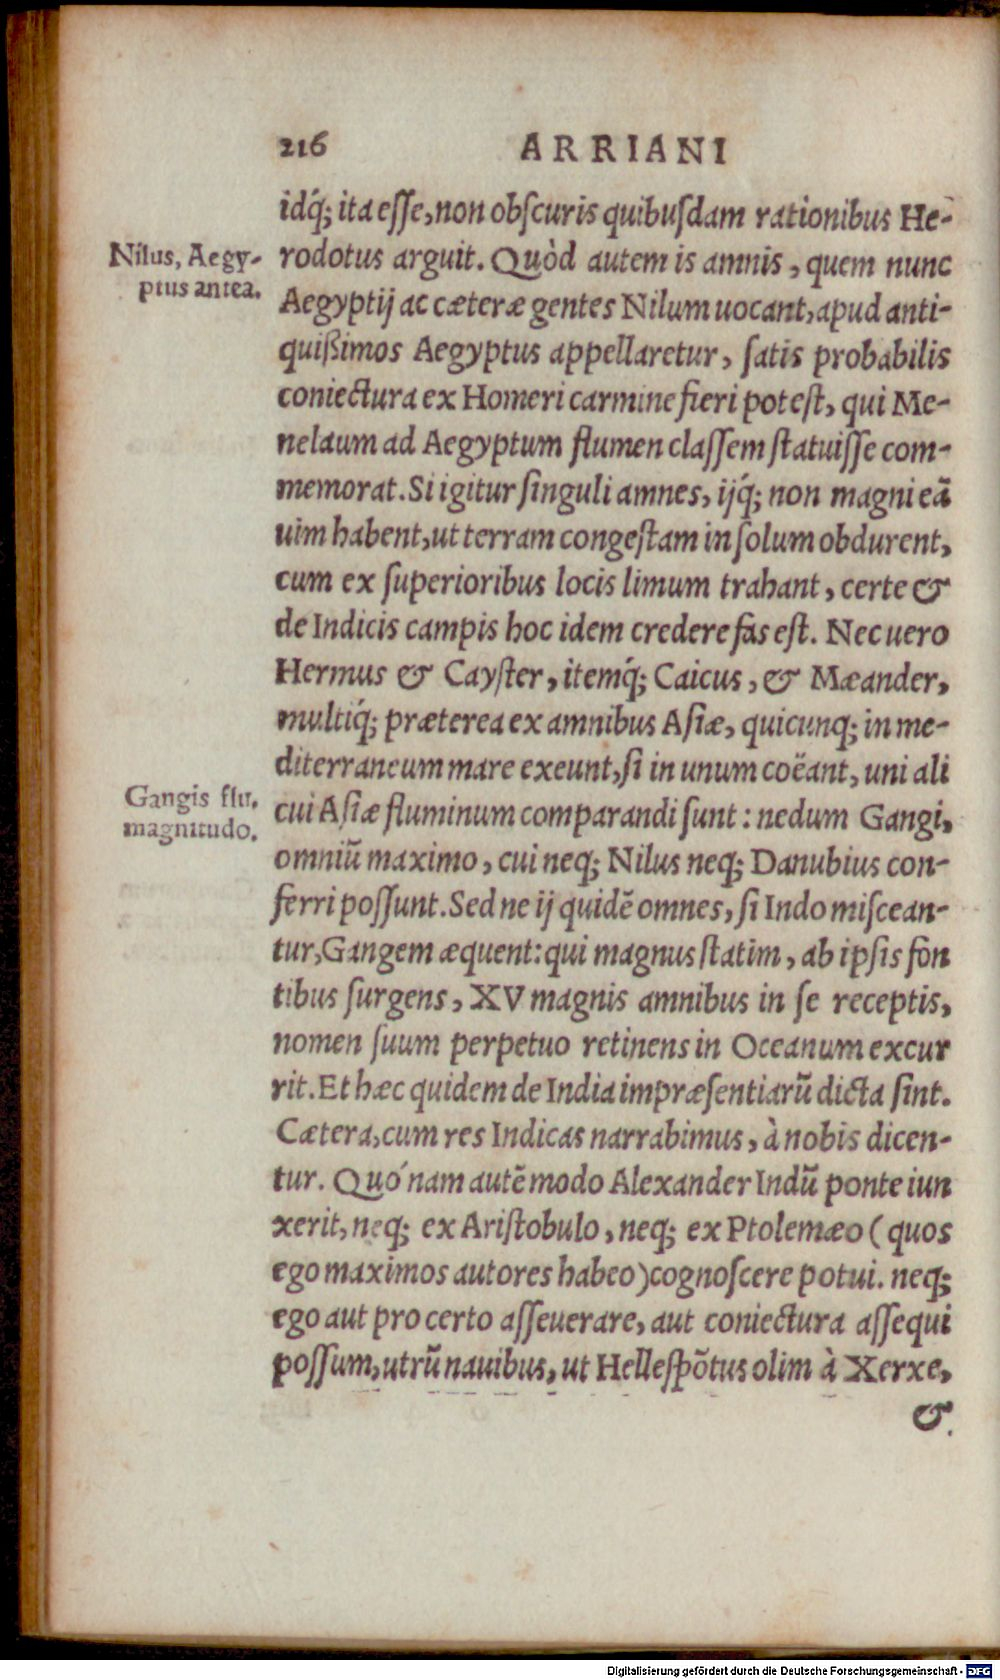 216 ARRIANI
idq́; ita eſſe, non obſcuris quibuſdam rationibus He-
Nilus, Aegy-
ptus antea.
rodotus arguit. Quòd autem is amnis, quem nunc
Aegyptij ac cæteræ gentes Nilum uocant, apud anti-
quißimos Aegyptus appellaretur, ſatis probabilis
coniectura ex Homeri carmine fieri poteſt, qui Me-
nelaum ad Aegyptum flumen claſſem ſtatuiſſe com-
memorat. Si igitur ſinguli amnes, ijq́; non magni eã
uim habent, ut terram congeſtam in ſolum obdurent,
cum ex ſuperioribus locis limum trahant, certe &
de Indicis campis hoc idem credere fas eſt. Nec uero
Hermus & Cayſter, itemq́; Caicus, & Mæander,
multiq́; præterea ex amnibus Aſiæ, quicunq; in me-
diterraneum mare exeunt, ſi in unum coëant, uni ali
Gangis flu.
magnitudo.
cui Aſiæ fluminum comparandi ſunt: nedum Gangi,
omniũ maximo, cui neq; Nilus neq; Danubius con-
ferri poſſunt. Sed ne ij quidẽ omnes, ſi Indo miſcean-
tur, Gangem æquent: qui magnus ſtatim, ab ipſis fon
tibus ſurgens, XV magnis amnibus in ſe receptis,
nomen ſuum perpetuo retinens in Oceanum excur
rit. Et hæc quidem de India impræſentiarũ dicta ſint.
Cætera, cum res Indicas narrabimus, à nobis dicen-
tur. Quó nam autẽ modo Alexander Indũ ponte iun
xerit, neq; ex Ariſtobulo, neq; ex Ptolemæo (quos
ego maximos autores habeo) cognoſcere potui. neq;
ego aut pro certo aſſeuerare, aut coniectura aſſequi
poſſum, utrũ nauibus, ut Helleſpõtus olim à Xerxe,
&
Digitalisierung gefördert durch die Deutsche Forschungsgemeinschaft - DFG